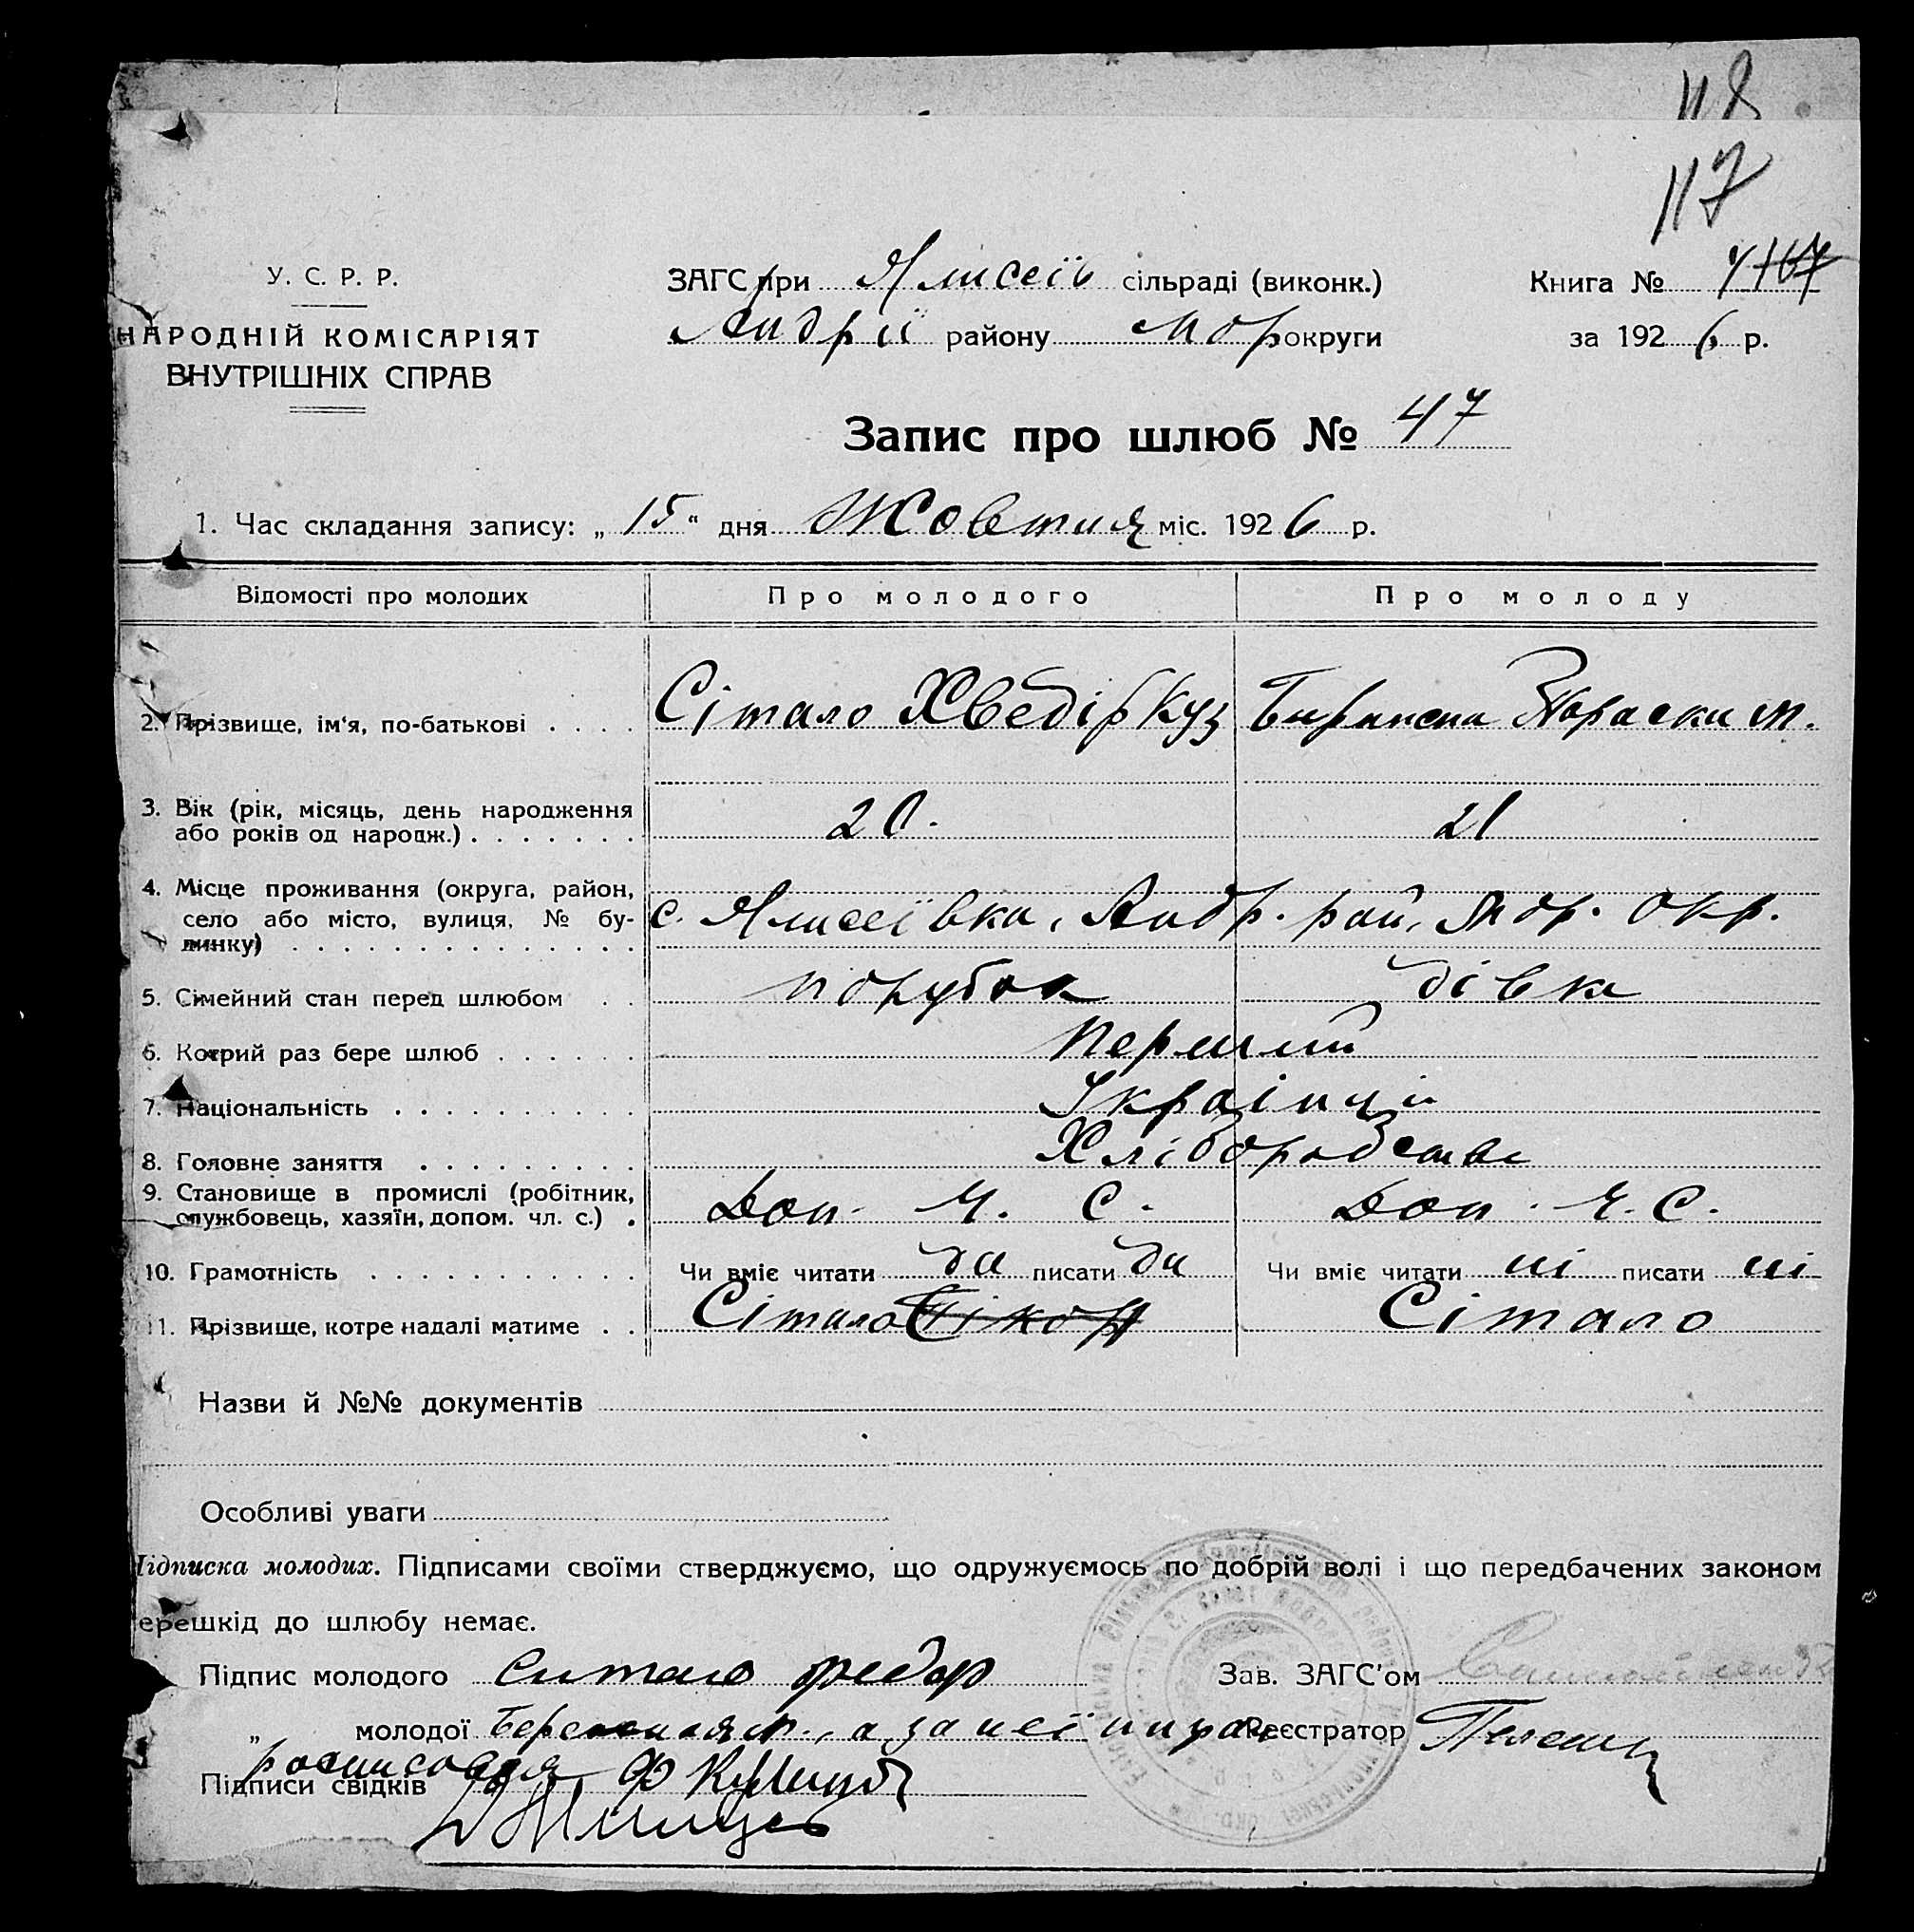 118
117
У. С. Р. Р.
НАРОДНІЙ КОМІСАРІЯТ
ВНУТРІШНІХ СПРАВ
ЗАГС при Ялисеїв сільраді (виконк.)
Андрії району Мор округи
Книга №
за 1926 р.
Запис про шлюб № 47
1. Час складання запису: „15“ дня Жовтня міс. 1926 р.
Відомості про молодих Про молодого Про молоду
2. Прізвище, ім‘я, по-батькові . . . . Сітало Хведір Куз Параски М.
3. Вік (рік, місяць, день народження
або років од народж.) . . . . . . . 20. 21
4. Місце проживання (округа, район,
село або місто, вулиця, № бу-
динку) . . . . . . . . . . . . . с. Ялисеївка, Андр. рай, Мор. окр.
5. Сімейний стан перед шлюбом . . парубок дівка
6. Котрий раз бере шлюб . . . . . . Перший
7. Національність . . . . . . . . . . Українці
8. Головне заняття . . . . . . . . . Хліборобство
9. Становище в промислі (робітник,
службовець, хазяїн, допом. чл. с.) . Доп. Ч. С. Доп. Ч. С.
10. Грамотність . . . . . . . . . . . Чи вміє читати да писати да Чи вміє читати ні писати ні
11. Прізвище, котре надалі матиме . . Сітало Сітало
Назви й №№ документів
Особливі уваги
Підписка молодих. Підписами своїми стверджуємо, що одружуємось по добрій волі і що передбачених законом
перешкід до шлюбу немає.
Підпис молодого Ситало Федор Зав. ЗАГС‘ом
„ молодої а за неї Реєстратор
росписовся
Підписи свідків